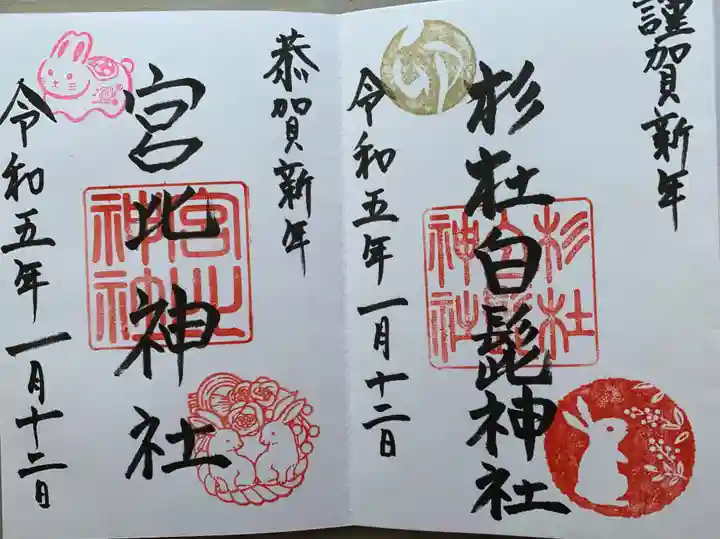 謹賀新年
杉杜白髭神社
卯
杉杜白髭神社
令和五年一月十二日
恭賀新年
宮北神社
令和五年一月十二日